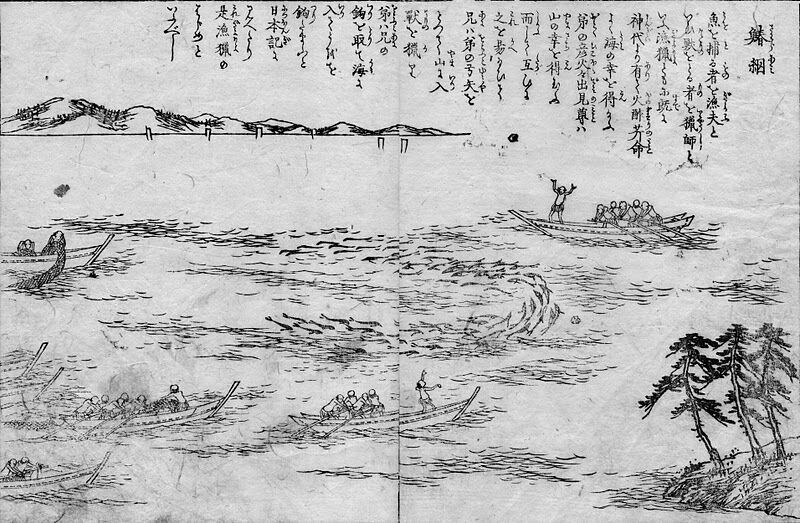 鰆網
魚を捕る者を漁夫と
いひ獣をとる者を猟師と
いふ漁猟ともに既に
神代より有て火酢芹命
よく海の幸を得給ふ
弟の彦火々出見尊は
山の幸を得給ふ
而して互ひに
之を易かひて
兄は弟の弓矢を
もつて山に入
獣を猟し
弟は兄の
鈎を取て海に
入て魚を
釣給ふと
日本記に
見へたり
是漁猟の
はじめと
いふべし